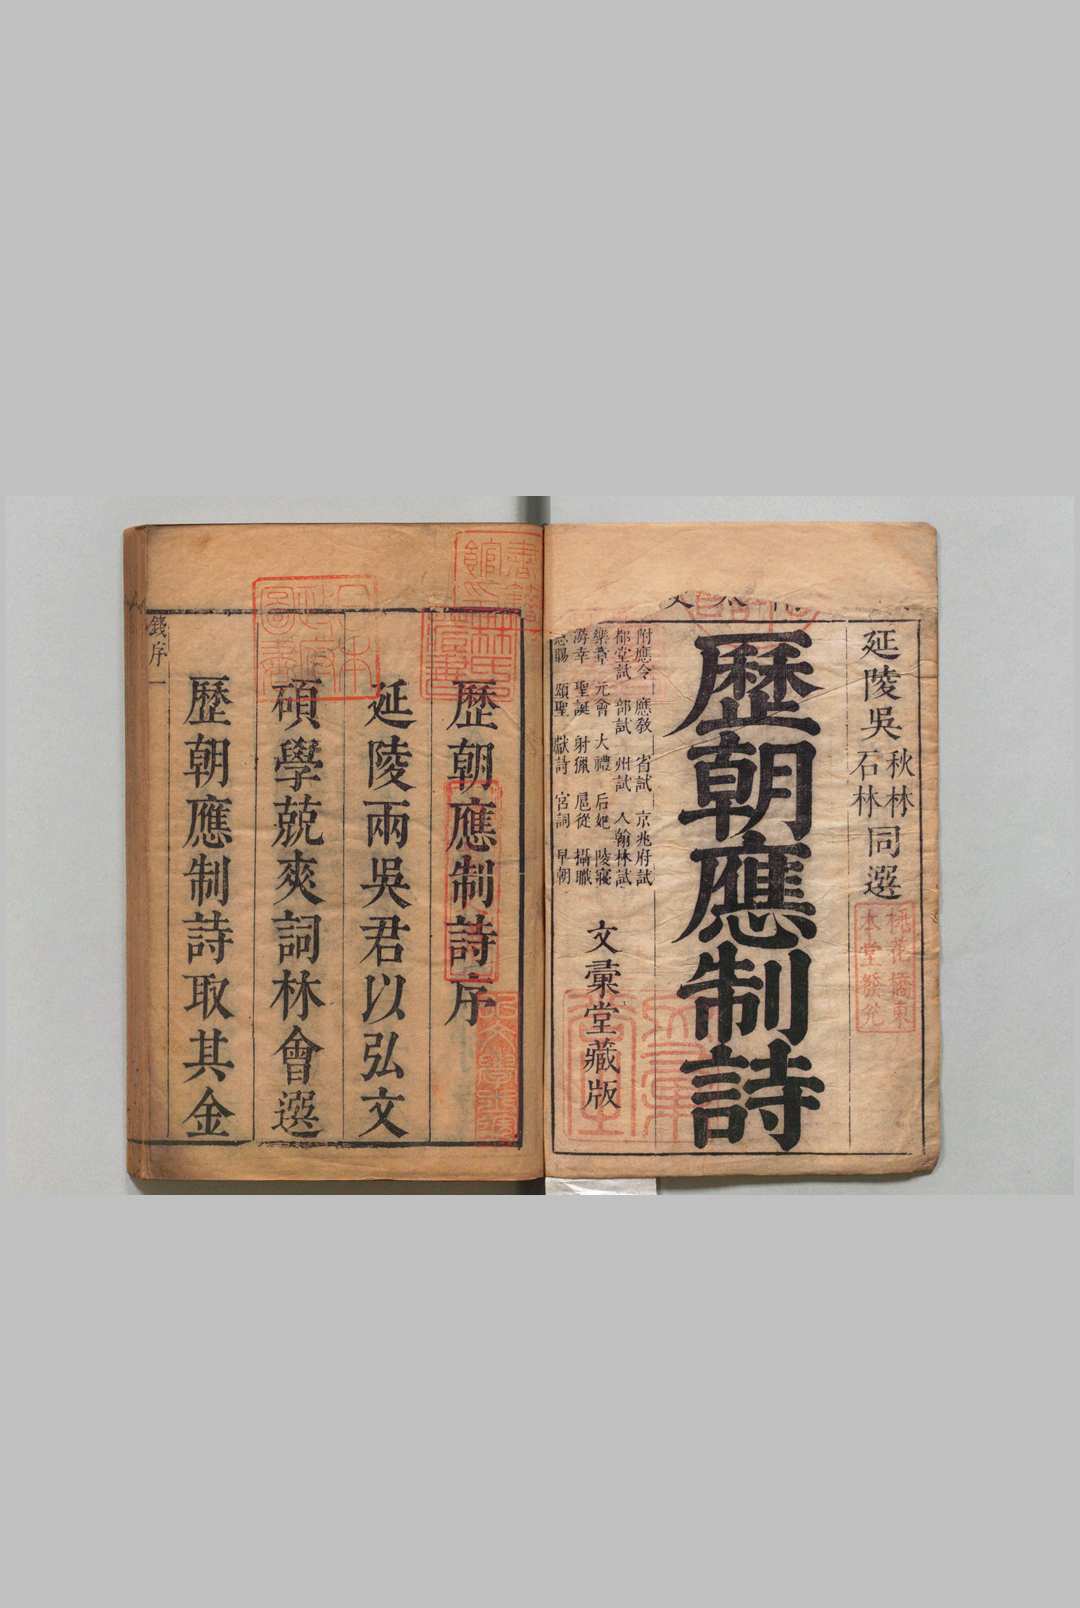 延陵吳秋林石林同選
桃花橋東
本堂發兌
歷朝應制詩
附應令 應教 省試 京兆府試
都堂試 部試 州試 入翰林試
樂章 元會 大禮 后妃 陵寢
游幸 聖誕 射獵 扈從 攝職
恩賜 頌聖 獻詩 宮詞 早朝
文彙堂藏版
歷朝應制詩序
延陵兩吳君以弘文
碩學兢爽詞林會選
歷朝應制詩取其金
錢序 一
林氏藏書